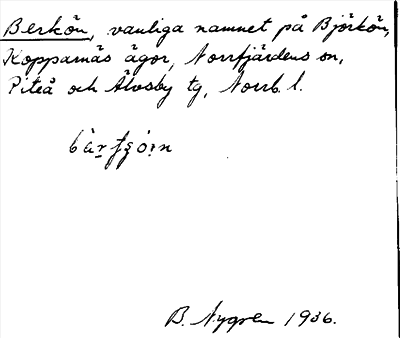 Berkön, vanliga namnet på Björkön,
Kopparnäs ägor, Norrfjärdens sn,
Piteå och Älvsby tg, Norrb. l.
B. Nygren 1936.